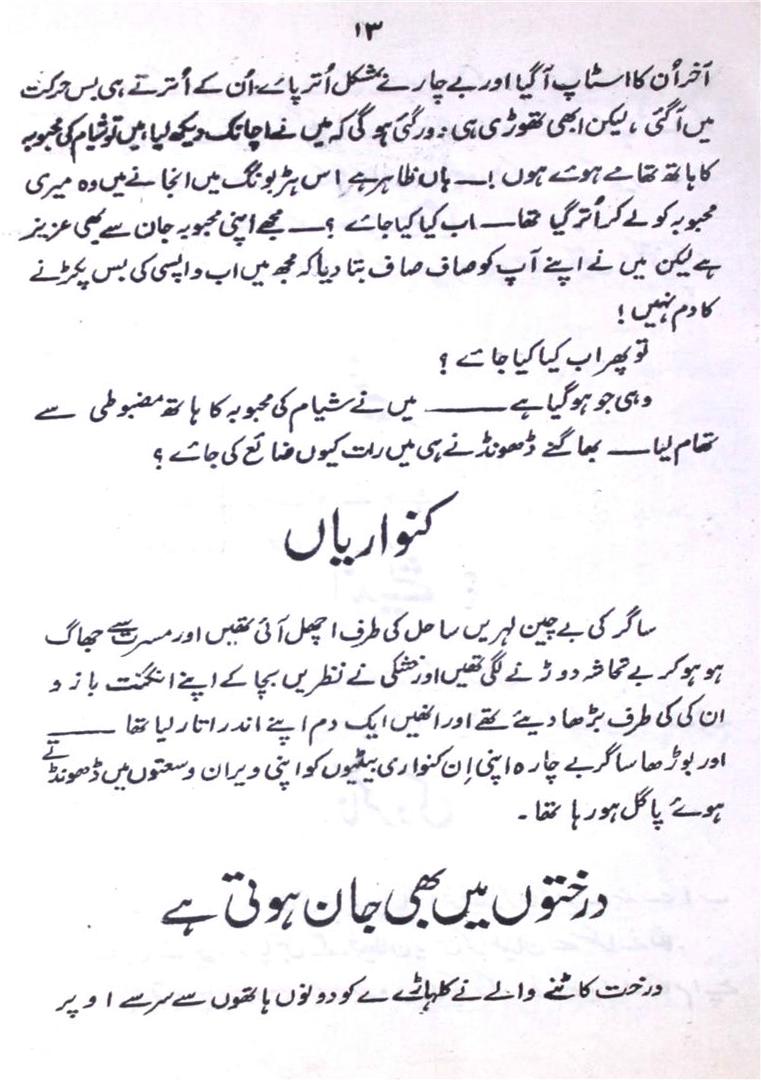 ۱۳
آخر اُن کا اسٹاپ آگیا اور بے چارے بمشکل اُتر پائے اُن کے اُترتے ہی بس حرکت
میں آگئی ، لیکن ابھی تھوڑی ہی دور گئی ہوگی کہ میں نے اچانک دیکھ لیا ، میں تو شیام کی محبوبہ
کا ہاتھ تھامے ہوئے ہوں !ــــ ہاں ظاہر ہے اس ہڑبونگ میں انجانے میں وہ میری
محبوبہ کو لے کر اُتر گیا تھا ــــ اب کیا کیا جائے ؟ــــ مجھے اپنی محبوبہ جان سے بھی عزیز
ہے لیکن میں نے اپنے آپ کو صاف صاف بتا دیا کہ مجھ میں اب واپسی کی بس پکڑنے
کا دم نہیں !
تو پھر اب کیا کیا جائے ؟
وہی جو ہوگیا ہے ـــــــــ میں نے شیام کی محبوبہ کا ہاتھ مضبوطی سے
تھام لیا ــــ بھاگنے ڈھونڈنے ہی میں رات کیوں ضائع کی جائے ؟
کنواریاں
ساگر کی بے چین لہریں ساحل کی طرف اچھل آئی تھیں اور مسرت سے جھاگ
ہو ہو کر بے تحاشہ دوڑنے لگی تھیں اور خشکی نے نظریں بچا کے اپنے انگنت بازو
ان کی کی طرف بڑھا دیئے تھے اور انھیں ایک دم اپنے اندر اتار لیا تھا ـــــــ
اور بوڑھا ساگر بے چارہ اپنی اِن کنواری بیٹیوں کو اپنی ویران وسعتوں میں ڈھونڈتے
ہوئے پاگل ہو رہا تھا ۔
درختوں میں بھی جان ہوتی ہے
درخت کاٹنے والے نے کلہاڑے کو دونوں ہاتھوں سے سر سے اوپر